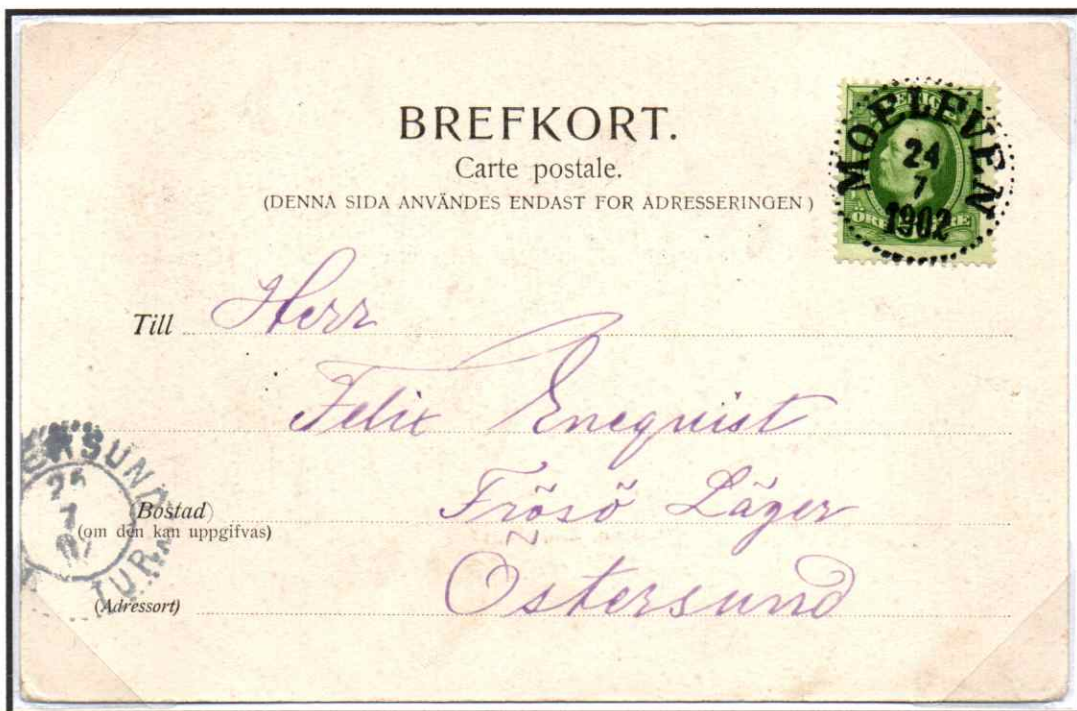 BREFKORT.
Carte postale.
(DENNA SIDA ANVÄNDES ENDAST FOR ADRESSERINGEN )
MOELFVEN
24
7
1902
ÖRE
Till Herr
Felix Enequist
Bostad) Frösö Läger
(om den kan uppgifvas)
(Adressort) Östersund
ERSUND
25
7
TUR